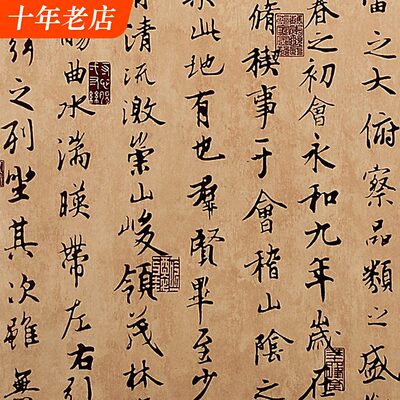 十年老店
之大俯察品類之盛
春之初會永和九年歲在
脩稧事于會稽山陰之
此地有也羣賢畢至少
清流激崇山峻領茂林
觴曲水滿暎帶左右引
之列坐其次雖無